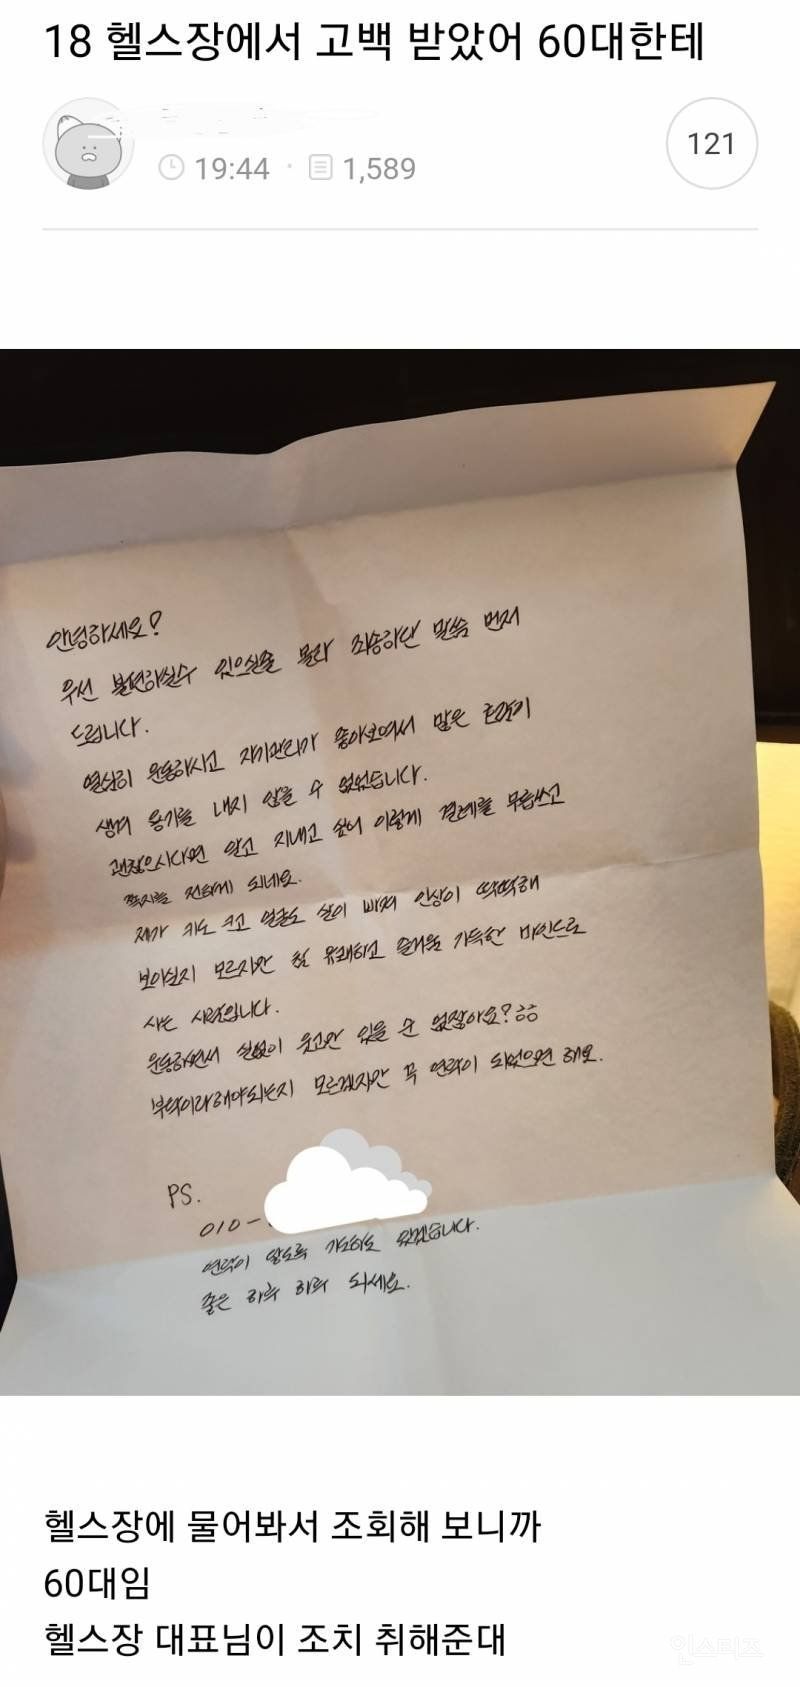 18 헬스장에서 고백 받았어 60대한테
19:44 · 1,589
121
안녕하세요?
우선 불편하실수 있으실줄 몰라 죄송하단 말씀 먼저
드립니다.
열심히 운동하시고 자기관리가 좋아보여서 많은 호감이
생겨 용기를 내지 않을 수 없었습니다.
괜찮으시다면 알고 지내고 싶어 이렇게 결례를 무릅쓰고
쪽지를 전하게 되네요.
제가 키도 크고 얼굴도 살이 빠져 인상이 딱딱해
보이실지 모르지만 참 유쾌하고 즐거움 가득한 마인드로
사는 사람입니다.
운동하면서 실없이 웃고만 있을 순 없잖아요? ㅎㅎ
부탁이라해야되는지 모르겠지만 꼭 연락이 되었으면 해요.
PS.
010-
연락이 닿도록 기도하도 있겠습니다.
좋은 하루 하루 되세요.
헬스장에 물어봐서 조회해 보니까
60대임
헬스장 대표님이 조치 취해준대
인스티즈